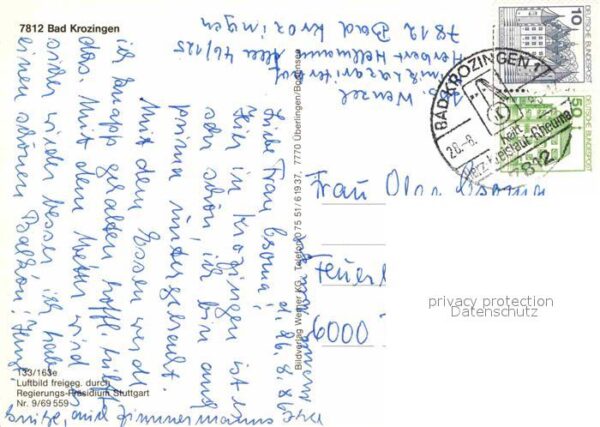 7812 Bad Krozingen
Abs. Wenzel
Herbert Hellmann Allee 46/125
7812 Bad Krozingen
d. 26. 8. 86
Liebe Frau Csoma!
Hier in Krozingen ist es
sehr schön, ich bin auch
prima untergebracht.
Mit dem Essen werde
ich knapp gehalten, hoffe, hilft
das. Mit dem Wetter wird es
sicher wieder besser, ich habe
einen schönen Balkon!
Grüße, auch Zimmermanns
Frau
Feuer
6000
DEUTSCHE BUNDESPOST
10
DEUTSCHE BUNDESPOST
50
BAD KROZINGEN 1
26.-8.
heilt
Herz-Kreislauf-Rheuma
7812
Bildverlag Werner KG · Telefon 0 75 51/6 19 37, 7770 Überlingen/Bodensee
133/163e
Luftbild freigeg. durch
Regierungs-Präsidium Stuttgart
Nr. 9/69 559
privacy protection
Datenschutz